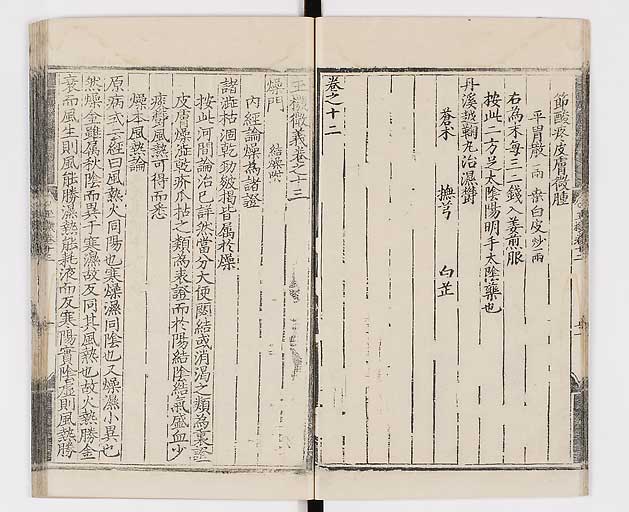 節酸疼皮膚微腫
平胃散一兩 桑白皮炒一兩
右為末每三二錢入姜煎服
按此二方足太陰陽明手太陰藥也
丹溪越鞠丸治濕鬱
蒼朮 撫芎 白芷
卷之十二
玉機微義卷之十三
燥門
內經論燥為諸證
諸澁枯涸乾勁皴揭皆屬於燥
按此河間論治已詳然當分大便閟結或消渴之類為裏證
皮膚燥澁乾疥爪枯之類為表證而於陽結陰結氣盛血少
痰鬱風熱可得而悉
燥本風熱論
原病式云經曰風熱火同陽也寒燥濕同陰也又燥濕小異也
然燥金雖屬秋陰而異乎寒濕故反同其風熱也故火熱勝金
衰而風生則風能勝濕熱能耗液而反寒陽實陰虛則風熱勝